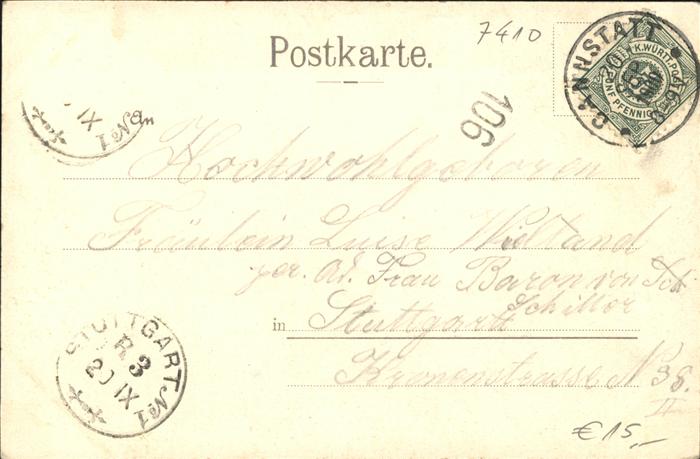 7410
Postkarte.
CANNSTATT
K.WÜRTT.POST
FÜNF PFENNIG
106
IX
No 1
An
Hochwohlgeboren
Fräulein Luise Wieland
per. Ad. Frau Baron von
Schiller
in Stuttgart
Kronenstrasse No 38.
II
STUTTGART. No 1
3
20 IX
€ 15,-